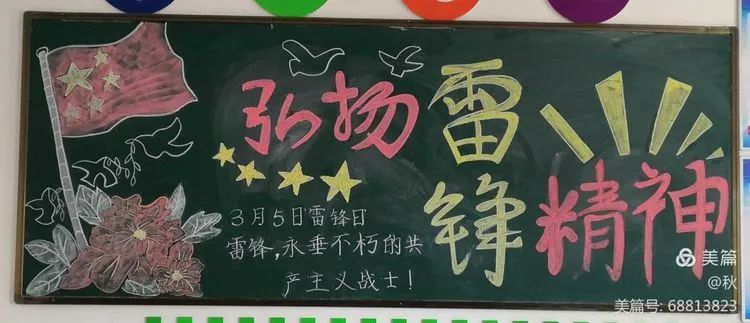 弘扬雷锋精神
3月5日雷锋日
雷锋,永垂不朽的共
产主义战士!
美篇
@秋
美篇号: 68813823